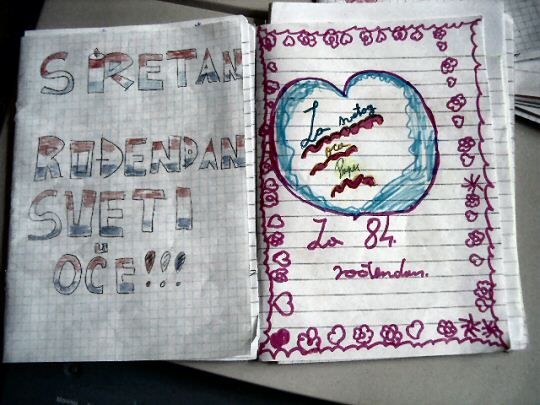 SRETAN
ROĐENDAN
SVETI
OČE!!!
Za svetog
oca
Papu
Za 84.
rođendan.